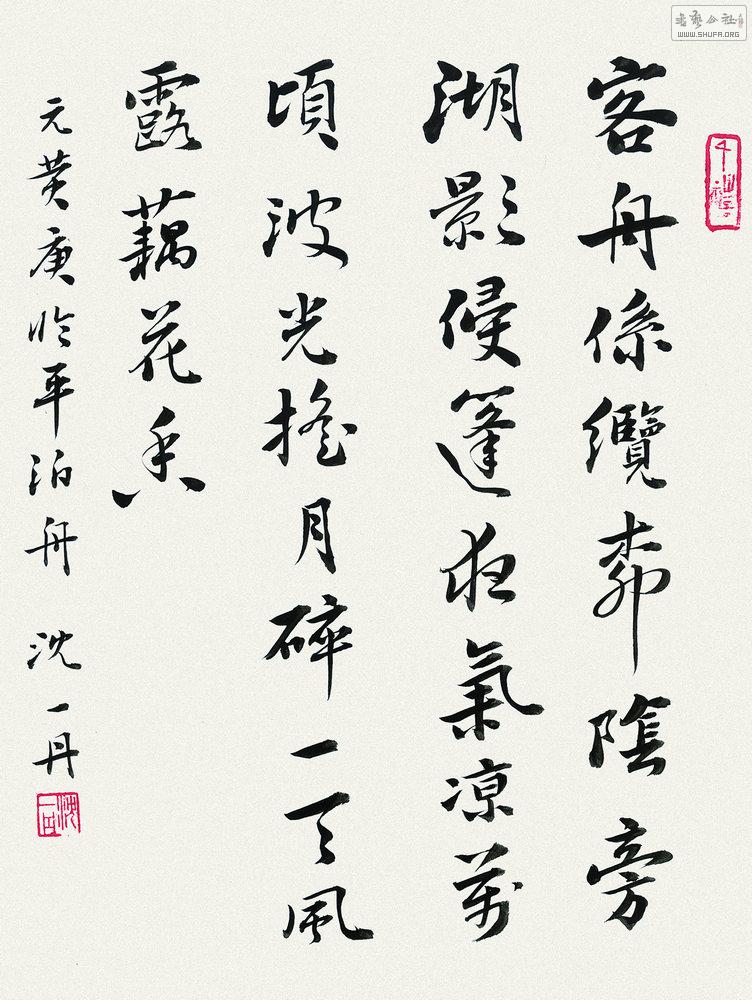 客舟係纜柳陰旁
湖影侵篷夜氣涼萬
頃波光搖月碎一天風
露藕花香
元黃庚臨平泊舟 沈一丹
沈一丹
書藝公社
WWW.SHUFA.ORG